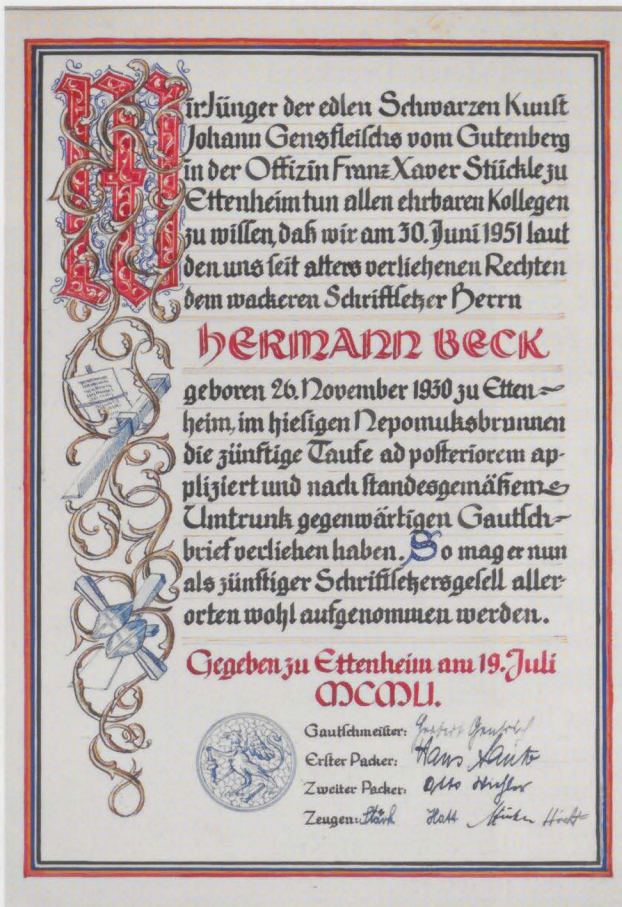 Wir Jünger der edlen Schwarzen Kunst
Johann Gensfleischs vom Gutenberg
in der Offizin Franz Xaver Stückle zu
Ettenheim tun allen ehrbaren Kollegen
zu wissen, daß wir am 30. Juni 1951 laut
den uns seit alters verliehenen Rechten
dem wackeren Schriftsetzer Herrn
HERMANN BECK
geboren 26. November 1930 zu Etten=
heim, im hiesigen Nepomuksbrunnen
die zünftige Taufe ad posteriorem ap-
pliziert und nach standesgemäßem
Umtrunk gegenwärtigen Gautsch=
brief verliehen haben. So mag er nun
als zünftiger Schriftsetzergesell aller-
orten wohl aufgenommen werden.
Gegeben zu Ettenheim am 19. Juli
MCMLI.
Gautschmeister:
Erster Packer: Hans
Zweiter Packer: Otto
Zeugen: Hatt